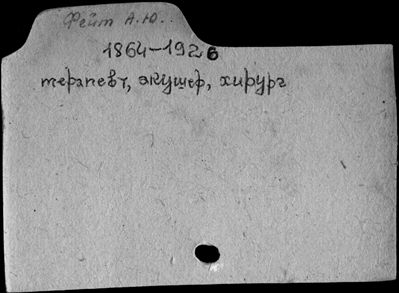 Фейт А.Ю.
1864-1926
терапевт, экушер, хирург